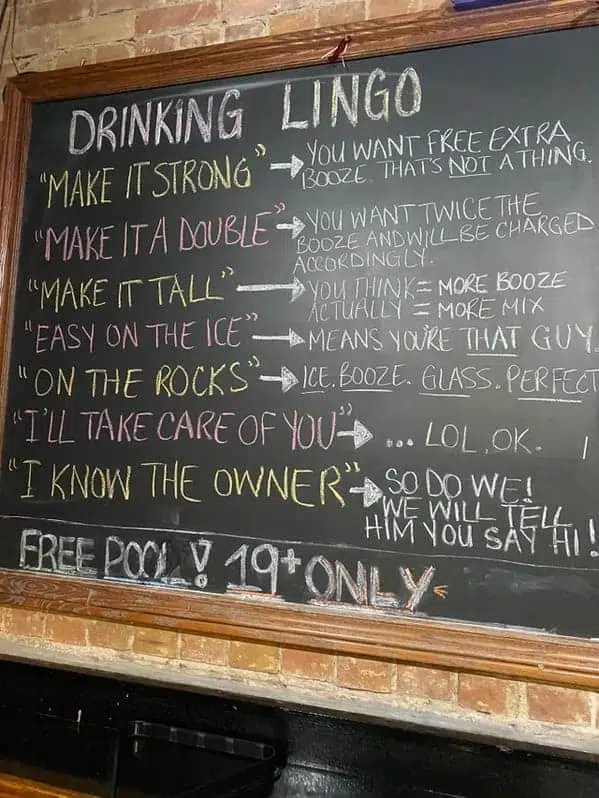 DRINKING LINGO
"MAKE IT STRONG" → YOU WANT FREE EXTRA
BOOZE. THAT'S NOT A THING.
"MAKE IT A DOUBLE" → YOU WANT TWICE THE
BOOZE AND WILL BE CHARGED
ACCORDINGLY.
"MAKE IT TALL" → YOU THINK = MORE BOOZE
ACTUALLY = MORE MIX
"EASY ON THE ICE" → MEANS YOU'RE THAT GUY.
"ON THE ROCKS" → ICE. BOOZE. GLASS. PERFECT
"I'LL TAKE CARE OF YOU" → ... LOL, OK.
"I KNOW THE OWNER" → SO DO WE!
WE WILL TELL
HIM YOU SAY HI!
FREE POOL! 19+ ONLY